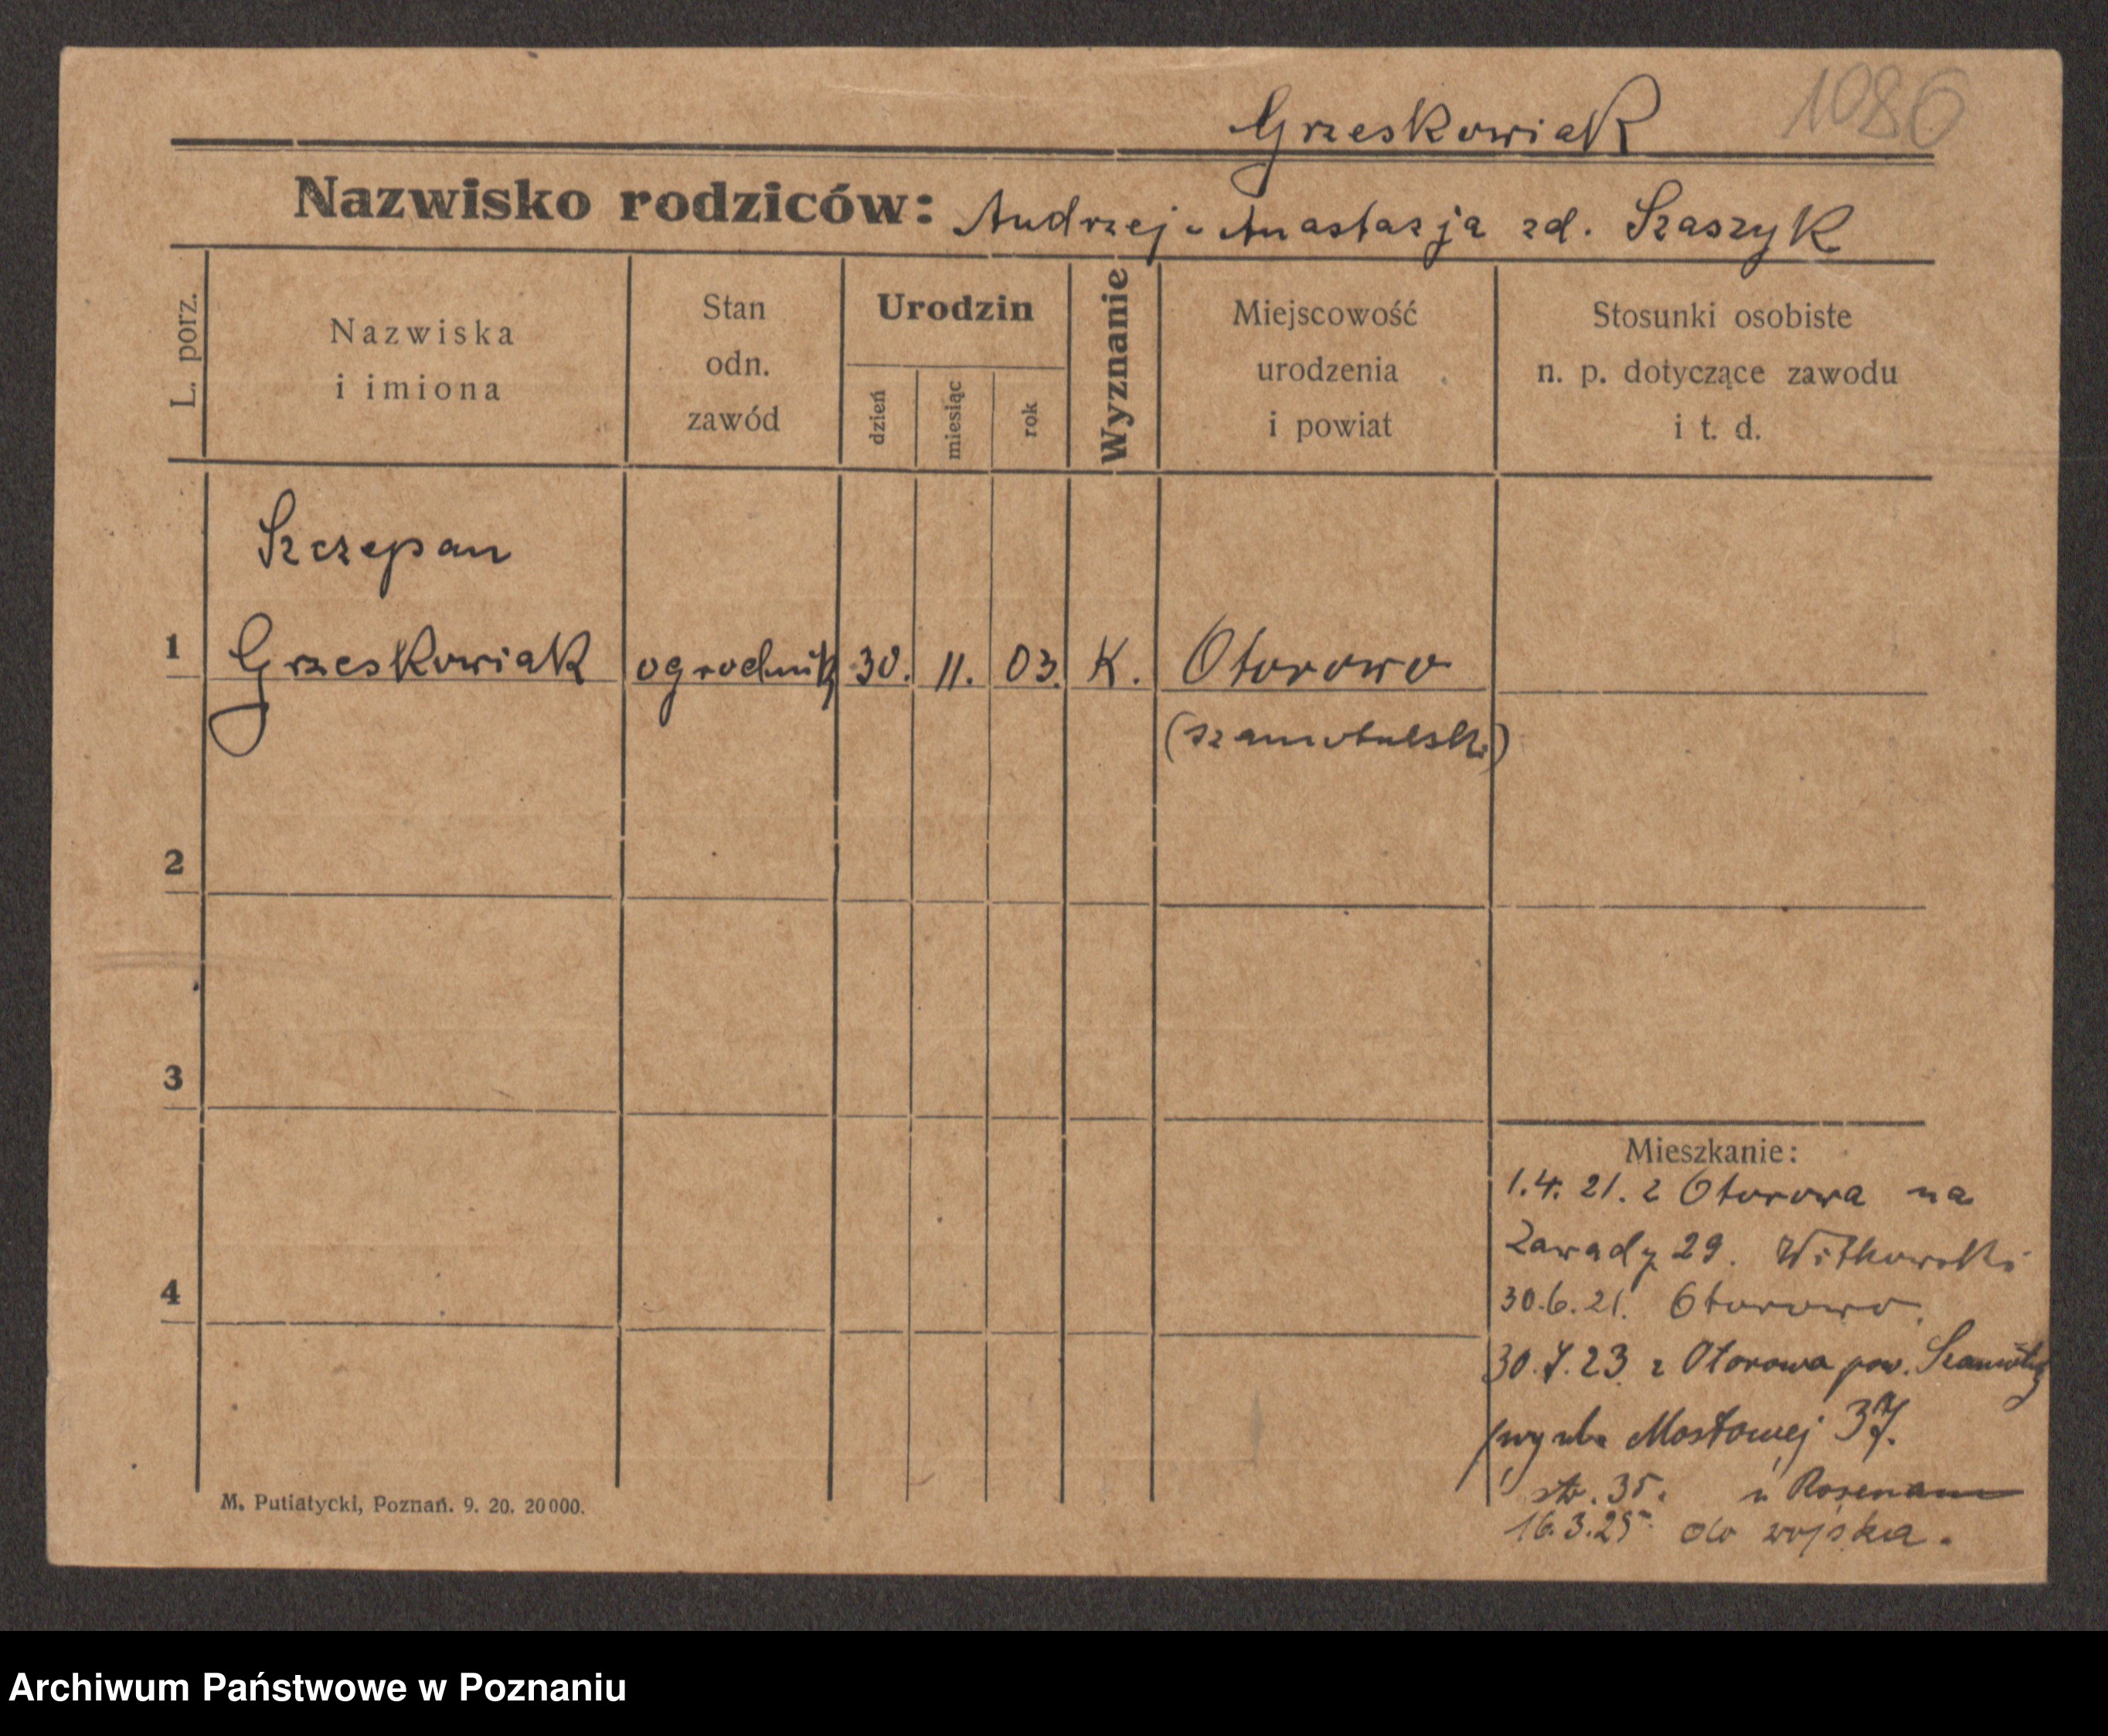 1086
Grzeskowiak
Nazwisko rodziców: Andrzej - Anastazja zd. Szaszyk
L. porz.
Nazwiska
i imiona
Stan
odn.
zawód
Urodzin
dzień
miesiąc
rok
Wyznanie
Miejscowość
urodzenia
i powiat
Stosunki osobiste
n. p. dotyczące zawodu
i t. d.
Szczepan
1 Grzeskowiak ogrodnik 30. 11. 03. K. Otorowo
(szamotulski)
2
3
4
Mieszkanie:
1.4.21. z Otorowa na
Zawady 29. Witkowski
30.6.21. Otorowo.
30.7.23 z Otorowa pow. Szamotuły
Mostowej 37.
35. u
16.3.25 do wojska.
M. Putiatycki, Poznań. 9. 20. 20000.
Archiwum Państwowe w Poznaniu